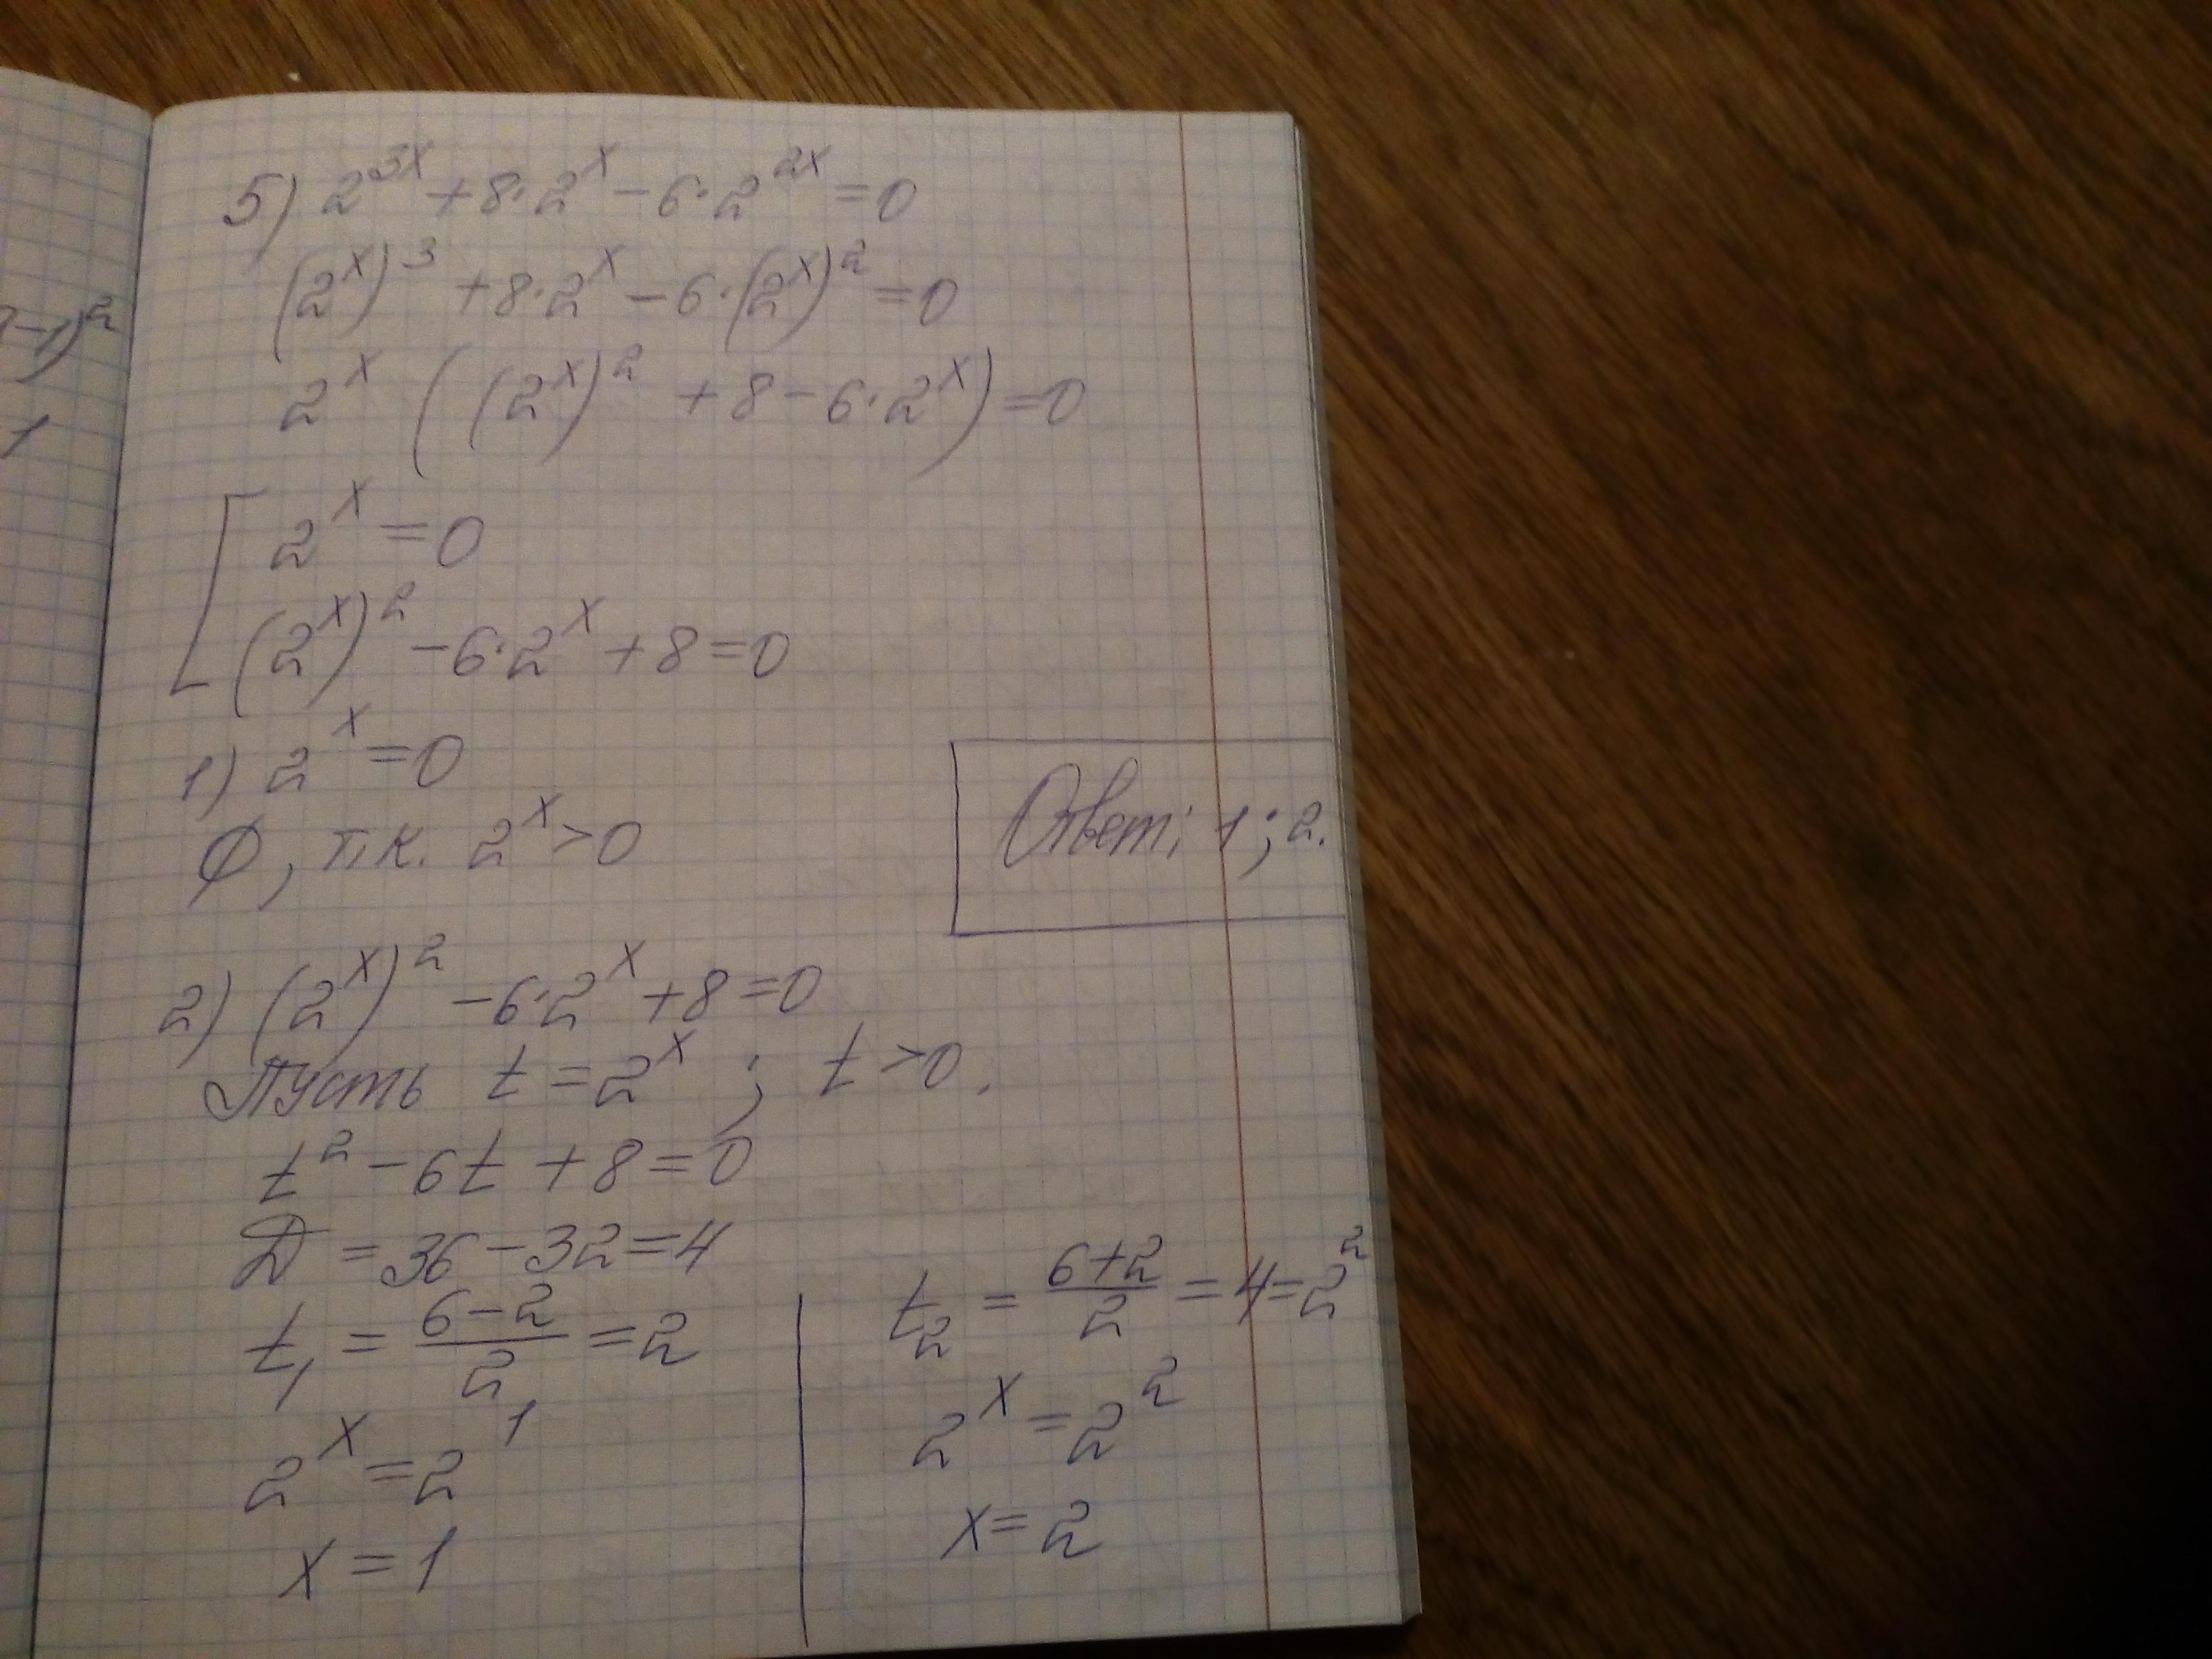 -1)²
1
5) 2^{3x} + 8·2^x − 6·2^{2x} = 0
(2^x)^3 + 8·2^x − 6·(2^x)^2 = 0
2^x ((2^x)^2 + 8 − 6·2^x) = 0
[ 2^x = 0
(2^x)^2 − 6·2^x + 8 = 0
1) 2^x = 0
Ø, т.к. 2^x > 0
Ответ: 1; 2.
2) (2^x)^2 − 6·2^x + 8 = 0
Пусть t = 2^x ; t > 0.
t^2 − 6t + 8 = 0
D = 36 − 32 = 4
t_1 = (6−2)/2 = 2
2^x = 2^1
x = 1
t_2 = (6+2)/2 = 4 = 2^2
2^x = 2^2
x = 2